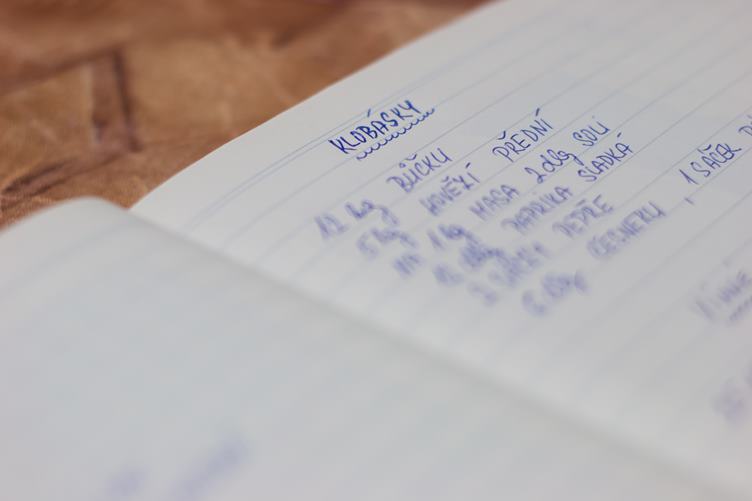 KLOBÁSKY
12 kg BŮČKU
5 kg HOVĚZÍ PŘEDNÍ
NA 1 kg MASA 2 dkg SOLI
12 dkg PAPRIKA SLADKÁ
3 SÁČKY PEPŘE
6 dkg ČESNEKU, 1 SÁČEK